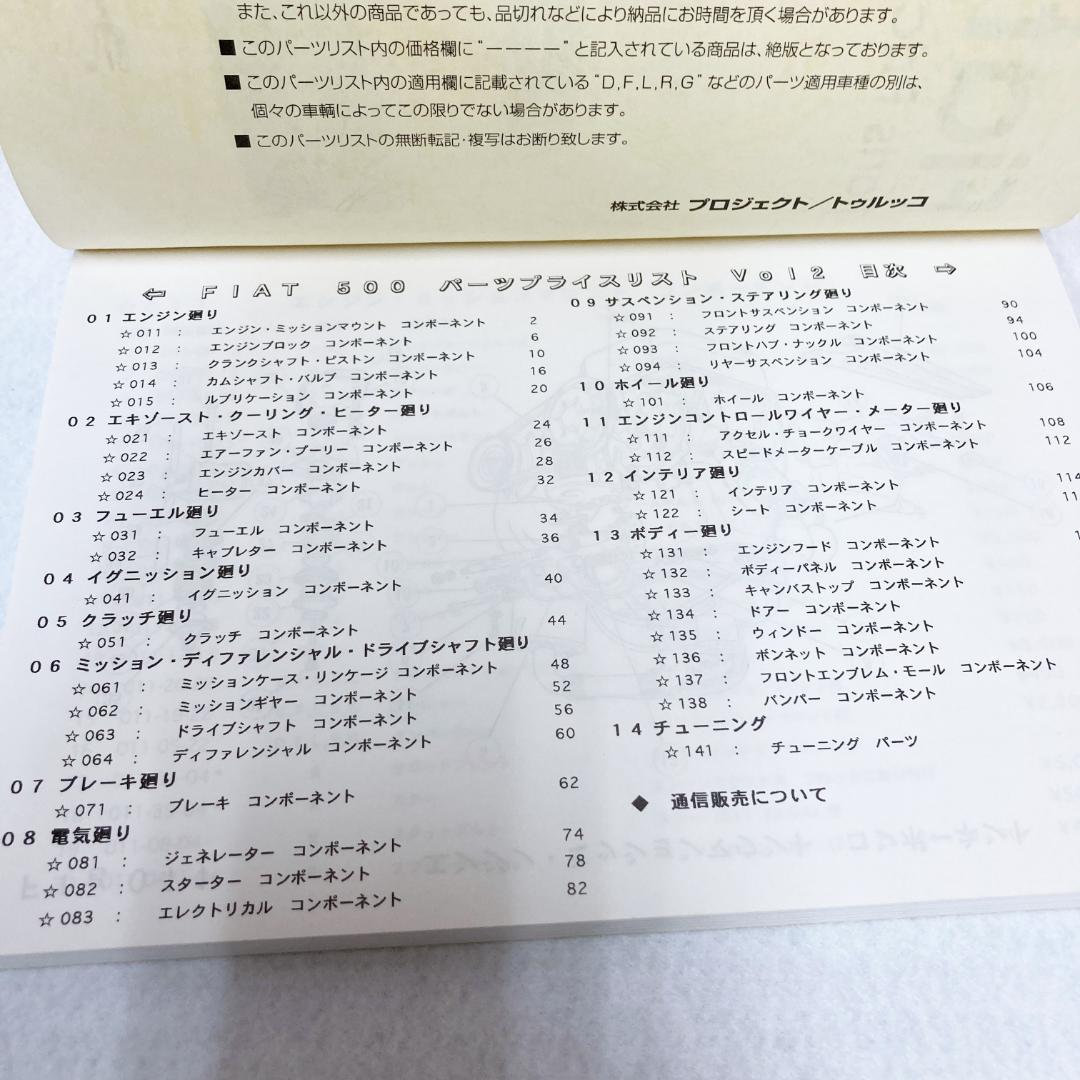 また、これ以外の商品であっても、品切れなどにより納品にお時間を頂く場合があります。
■ このパーツリスト内の価格欄に“ーーーー”と記入されている商品は、絶版となっております。
■ このパーツリスト内の適用欄に記載されている“D,F,L,R,G”などのパーツ適用車種の別は、
個々の車輌によってこの限りでない場合があります。
■ このパーツリストの無断転記・複写はお断り致します。
株式会社 プロジェクト／トゥルッコ
⇦ FIAT 500 パーツプライスリスト Vol2 目次 ⇨
01 エンジン廻り
☆011 : エンジン・ミッションマウント コンポーネント 2
☆012 : エンジンブロック コンポーネント 6
☆013 : クランクシャフト・ピストン コンポーネント 10
☆014 : カムシャフト・バルブ コンポーネント 16
☆015 : ルブリケーション コンポーネント 20
02 エキゾースト・クーリング・ヒーター廻り
☆021 : エキゾースト コンポーネント 24
☆022 : エアーファン・プーリー コンポーネント 26
☆023 : エンジンカバー コンポーネント 28
☆024 : ヒーター コンポーネント 32
03 フューエル廻り
☆031 : フューエル コンポーネント 34
☆032 : キャブレター コンポーネント 36
04 イグニッション廻り
☆041 : イグニッション コンポーネント 40
05 クラッチ廻り
☆051 : クラッチ コンポーネント 44
06 ミッション・ディファレンシャル・ドライブシャフト廻り
☆061 : ミッションケース・リンケージ コンポーネント 48
☆062 : ミッションギヤー コンポーネント 52
☆063 : ドライブシャフト コンポーネント 56
☆064 : ディファレンシャル コンポーネント 60
07 ブレーキ廻り
☆071 : ブレーキ コンポーネント 62
08 電気廻り
☆081 : ジェネレーター コンポーネント 74
☆082 : スターター コンポーネント 78
☆083 : エレクトリカル コンポーネント 82
09 サスペンション・ステアリング廻り
☆091 : フロントサスペンション コンポーネント 90
☆092 : ステアリング コンポーネント 94
☆093 : フロントハブ・ナックル コンポーネント 100
☆094 : リヤーサスペンション コンポーネント 104
10 ホイール廻り
☆101 : ホイール コンポーネント 106
11 エンジンコントロールワイヤー・メーター廻り
☆111 : アクセル・チョークワイヤー コンポーネント 108
☆112 : スピードメーターケーブル コンポーネント 112
12 インテリア廻り
☆121 : インテリア コンポーネント 114
☆122 : シート コンポーネント
13 ボディー廻り
☆131 : エンジンフード コンポーネント
☆132 : ボディーパネル コンポーネント
☆133 : キャンバストップ コンポーネント
☆134 : ドアー コンポーネント
☆135 : ウィンドー コンポーネント
☆136 : ボンネット コンポーネント
☆137 : フロントエンブレム・モール コンポーネント
☆138 : バンパー コンポーネント
14 チューニング
☆141 : チューニング パーツ
◆ 通信販売について